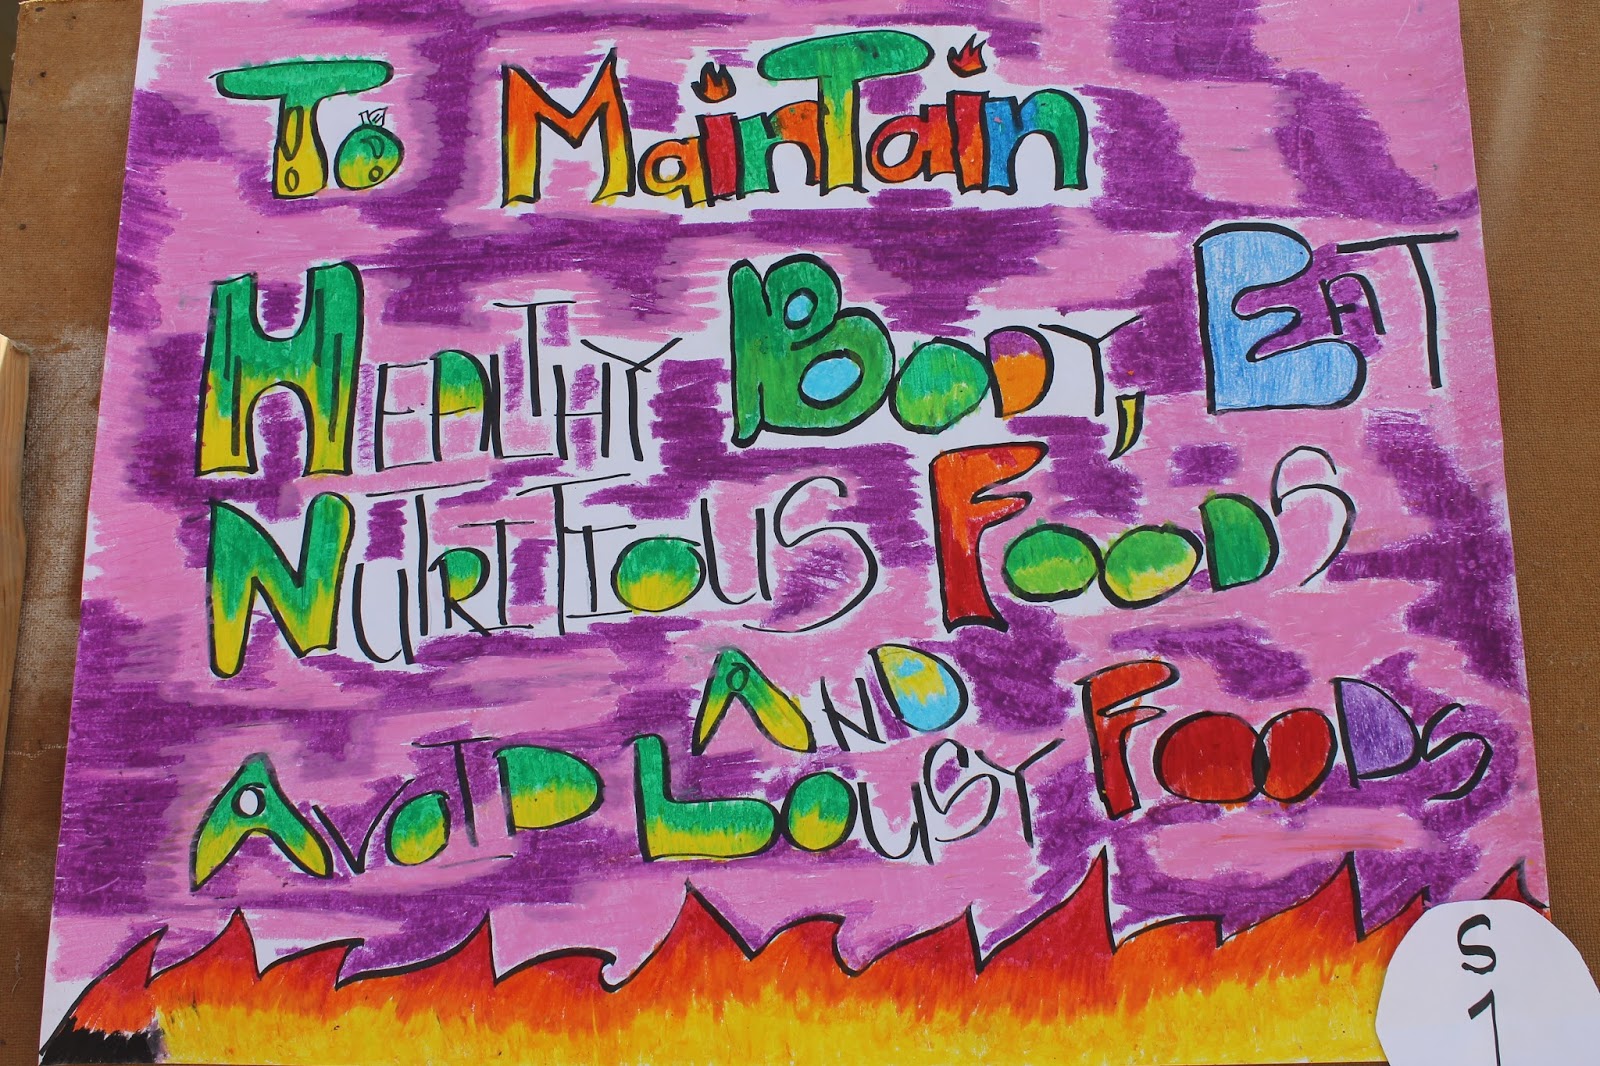 To MainTain
HEALTHY BODY, EAT
NUTRITIOUS FOODS
AND
AVOID LOUSY FOODS
S
1